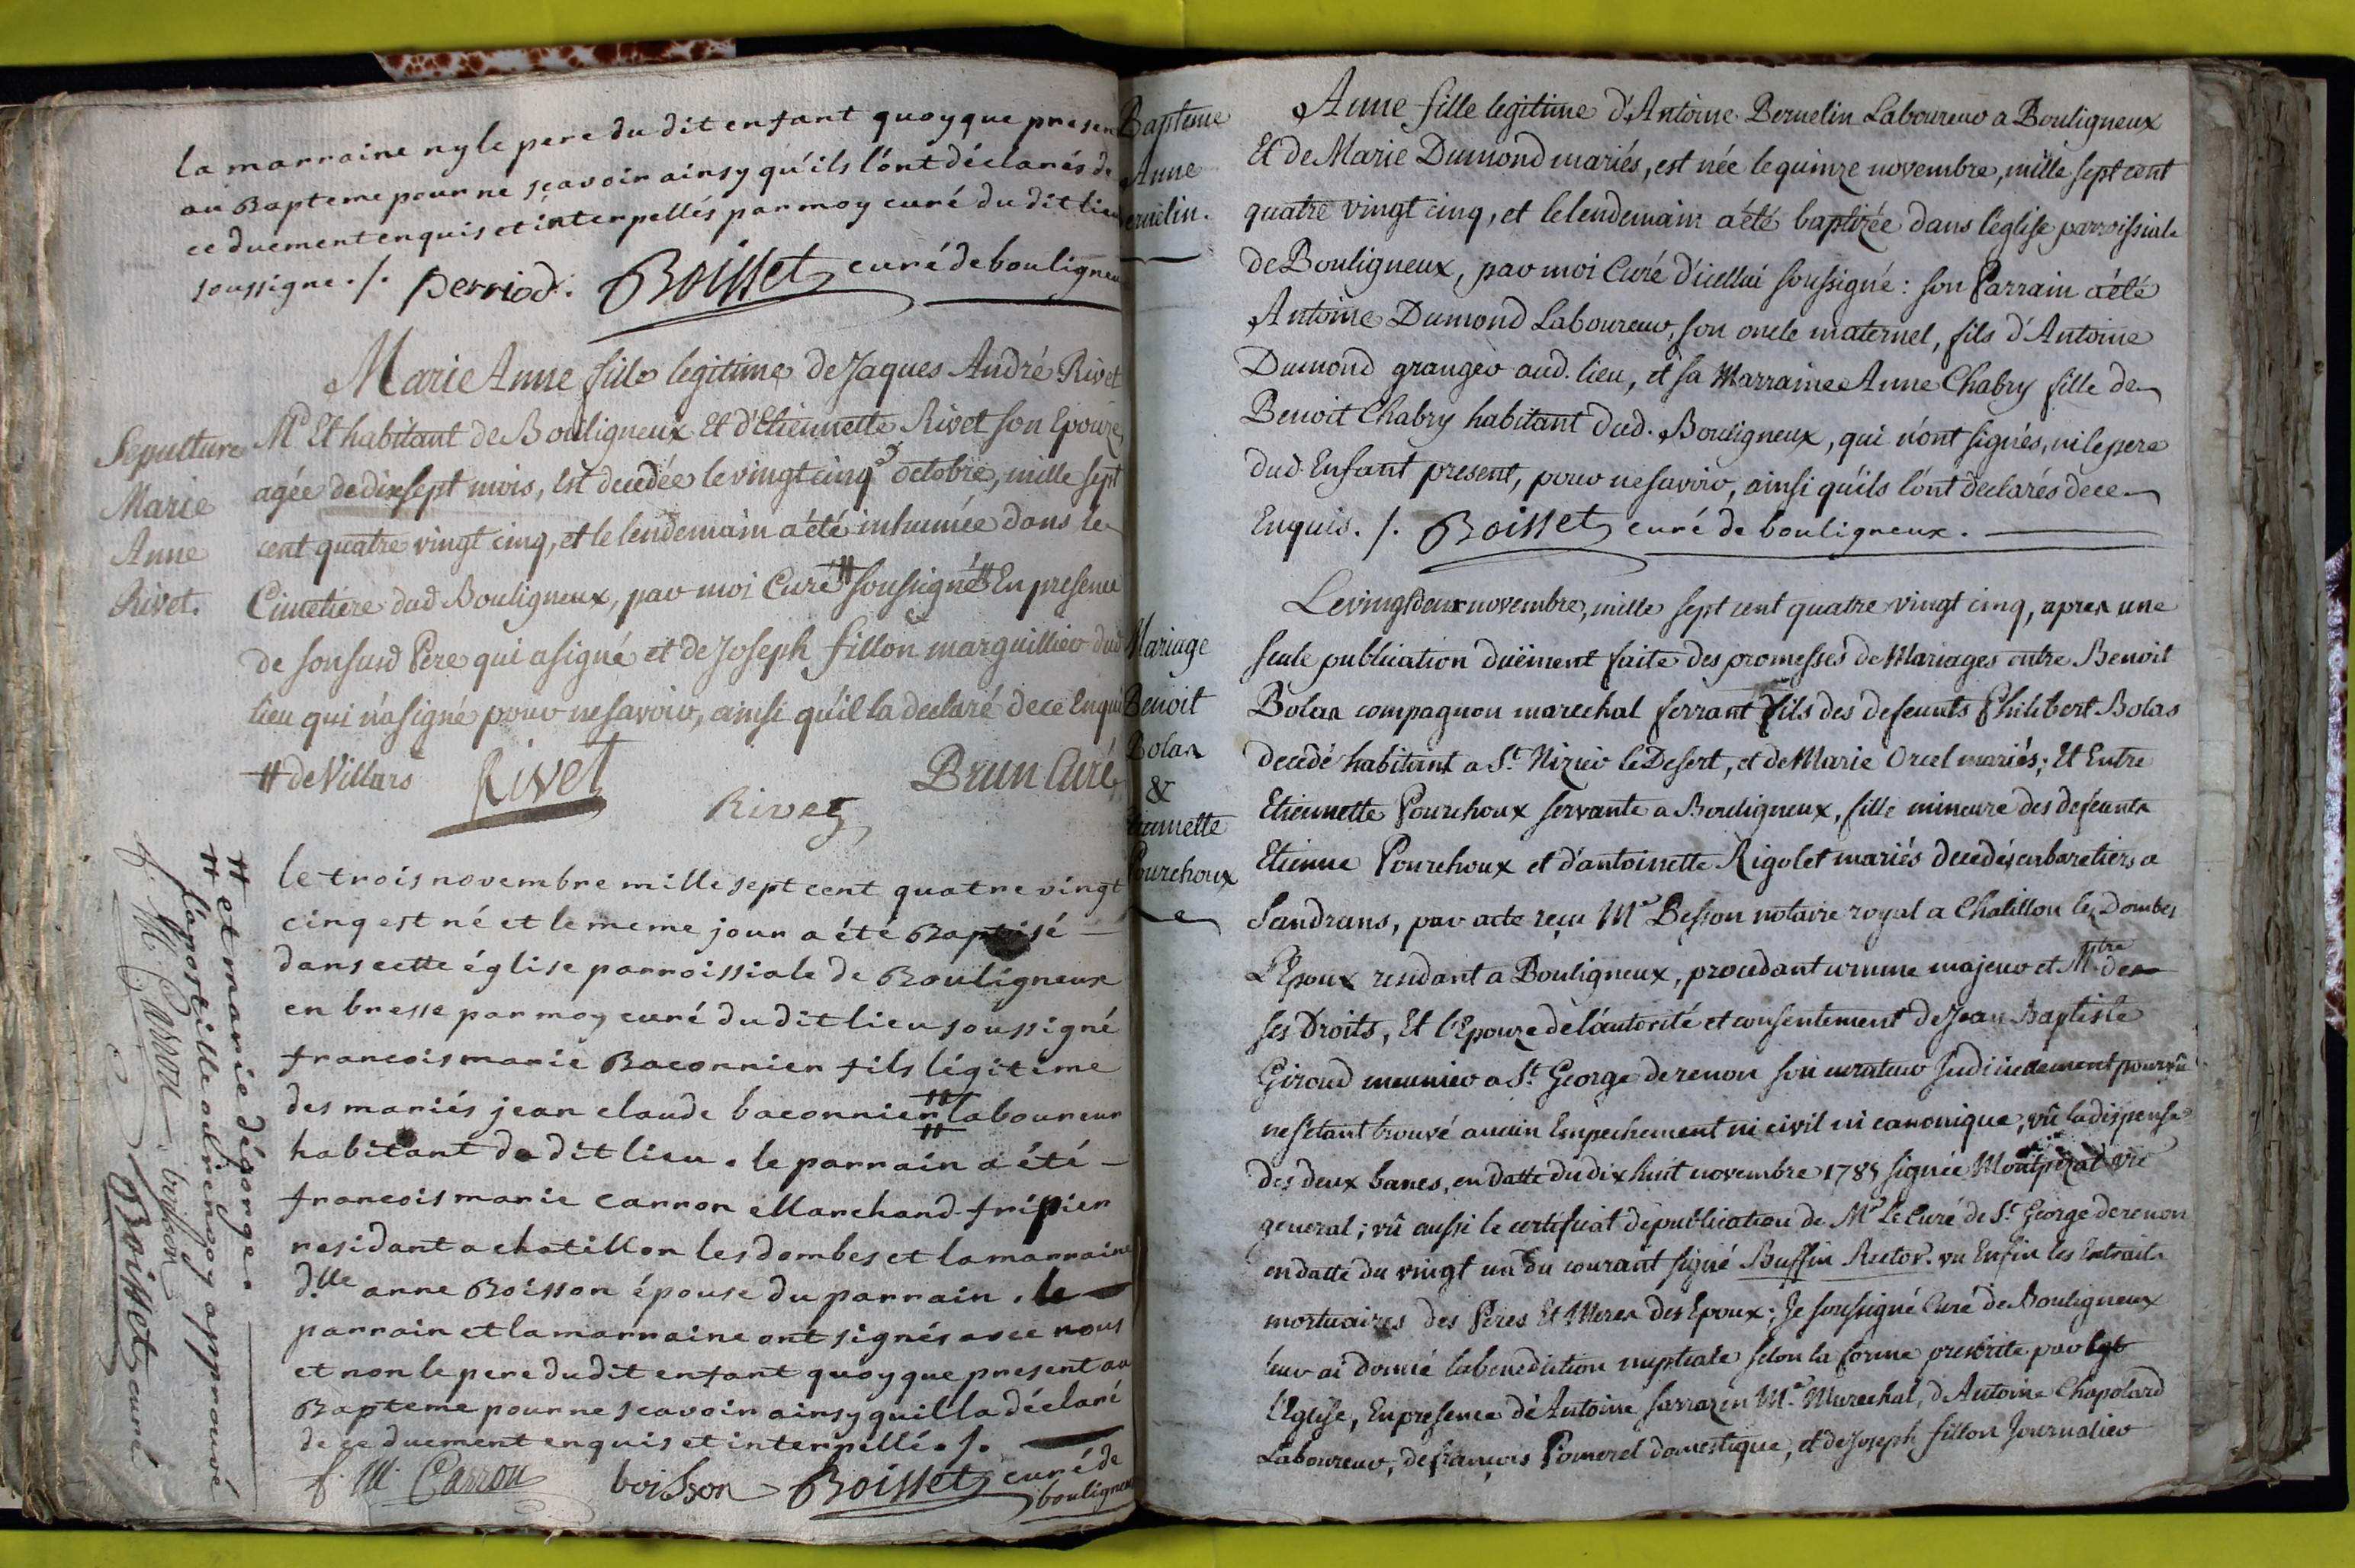 la marraine ny le pere du dit enfant quoyque present
au Bapteme pour ne sçavoir ainsy qu'ils l'ont déclarés de
ce duement enquis et interpellés par moy curé du dit lieu
soussigne ./. perriod. Boisset curé de bouligneux
Marie Anne fille legitime de Jaques André Rivet
Md Et habitant de Bouligneux Et d'Etiennette Rivet son Epouze
agée de dixsept mois, est decedée le vingt cinq octobre, mille sept
cent quatre vingt cinq, et le lendemain a été inhumée dans le
Cimetiere dud Bouligneux, par moi Curé # soussigné # En presence
de sonsusd Pere qui a signé et de Joseph fillon marguillier dud
lieu qui n'a signé pour ne savoir, ainsi qu'il la declaré de ce Enquis
# de Villars Rivet Rivet Brun Curé
Sepulture
Marie
Anne
Rivet.
le trois novembre mille sept cent quatre vingt
cinq est né et le meme jour a été Baptisé —
dans cette église parroissiale de Bouligneux
en bresse par moy curé du dit lieu soussigné
francois marie Baconnier fils légitime
des mariés jean claude baconnier # laboureur
habitant du dit lieu . le parrain a été —
francois marie carron Marchand fripier
residant a chatillon les dombes et la marraine
d.lle anne Boisson épouse du parrain . le —
parrain et la marraine ont signés avec nous
et non le pere du dit enfant quoyque present au
Bapteme pour ne scavoir ainsy quil la déclaré
de ce duement enquis et interpellé ./.
f. M. Carron boisson Boisset curé de
bouligneux
# et marie dégorge.
# l'apostille au renvoy approuvé
f. M. Carron boisson
Boisset curé
Bapteme
Anne
Bernelin.
Anne fille legitime d'Antoine Bernelin Laboureur a Bouligneux
Et de Marie Dumond mariés, est née le quinze novembre, mille sept cent
quatre vingt cinq, et le lendemain a été baptizée dans l'église parroissiale
de Bouligneux, par moi Curé d'icellui soussigné : son Parrain a été
Antoine Dumond Laboureur, son oncle maternel, fils d'Antoine
Dumond granger aud. lieu, et sa Marraine Anne Chabry fille de
Benoit Chabry habitant dud. Bouligneux, qui n'ont signés, ni le pere
dud Enfant present, pour ne savoir, ainsi qu'ils l'ont declarés de ce
Enquis. /. Boisset curé de bouligneux.
Mariage
Benoit
Bolas
&
Etiennette
Pourchoux
Le vingtdeux novembre, mille sept cent quatre vingt cinq, apres une
seule publication duëment faite des promesses de Mariages entre Benoit
Bolas compagnon marechal ferrant fils des defeunts Philibert Bolas
decedé habitant a St Nizier le Desert, et de Marie Orcel mariés; Et Entre
Etiennette Pourchoux servante a Bouligneux, fille mineure des defeunts
Etienne Pourchoux et d'antoinette Rigolet mariés decedés cabaretiers a
Sandrans, par acte reçu Me Besson notaire royal a Chatillon les Dombes
L'Epoux residant a Bouligneux, procedant comme majeur et Mtre de
ses Droits, Et l'Epouze de l'autorité et consentement de Jean Baptiste
Giroud meunier a St George de renon son curateur judiciairement pourvû
ne s'etant trouvé aucun Empechement ni civil ni canonique, vû la dispense
des deux bancs, en datte du dix huit novembre 1785 signée Montpezat vic
general; vû aussi le certificat de publication de Mr Le Curé de St George de renon
en datte du vingt un du courant signé Buffin Rector. vu Enfin les Extraits
mortuaires des Peres Et Meres des Epoux; Je soussigné Curé de Bouligneux
leur ai donné la benediction nuptiale selon la forme prescrite par
l'Eglise, En presence de Antoine sarrazin Me Marechal, d'Antoine Chapolard
Laboureur, de françois Pomerel domestique, et de Joseph fillon Journalier